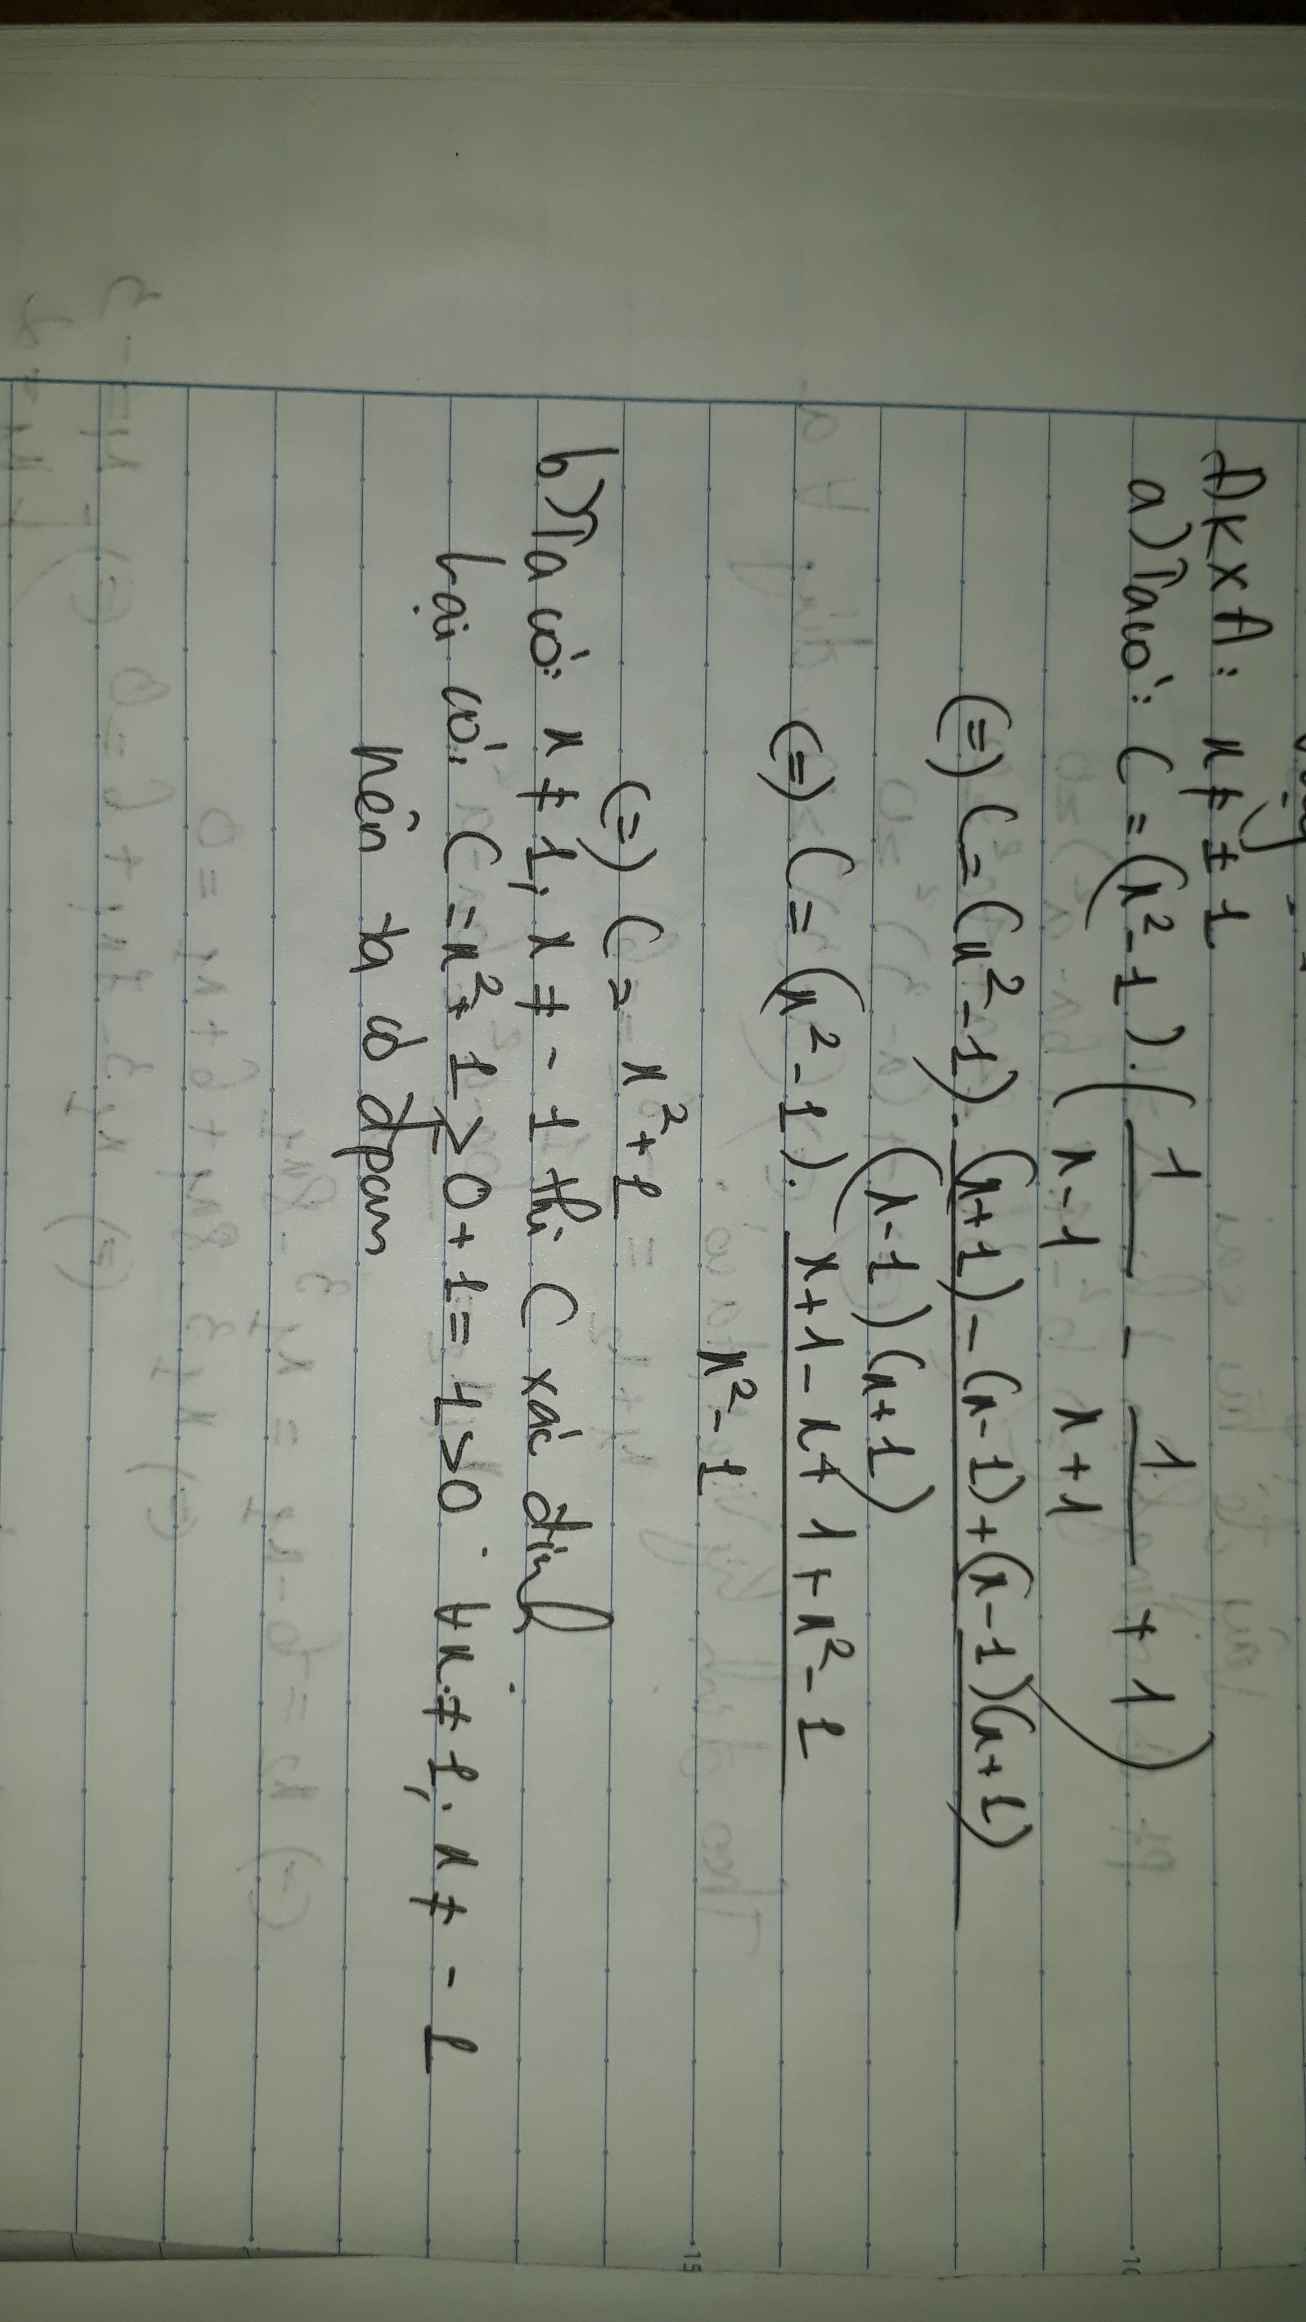 ĐKXĐ: x ≠ ± 1
a) Ta có: C = (x² - 1) . ( 1/(x - 1) - 1/(x + 1) + 1 )
(=) C = (x² - 1) . ((x + 1) - (x - 1) + (x - 1)(x + 1))/((x - 1)(x + 1))
(=) C = (x² - 1) . (x + 1 - x + 1 + x² - 1)/(x² - 1)
(=) C = x² + 1
b) Ta có: x ≠ 1, x ≠ - 1 thì C xác định
Lại có: C = x² + 1 ≥ 0 + 1 = 1 > 0 ∀x ≠ 1, x ≠ - 1
nên ta có đpcm
15